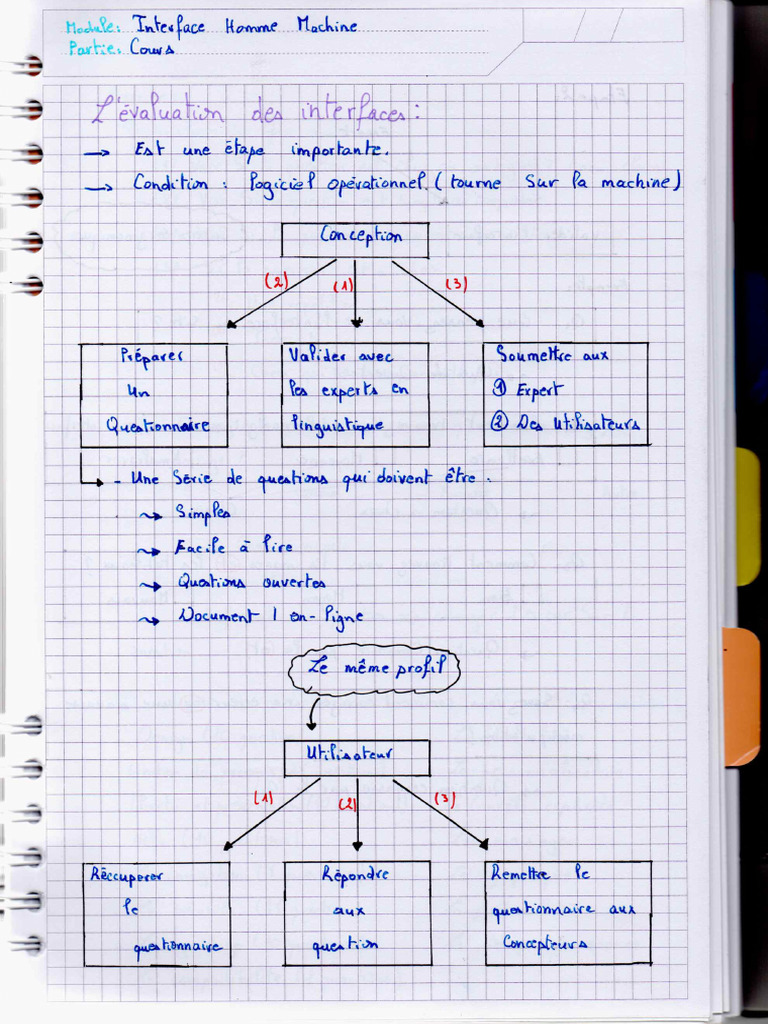 Module: Interface Homme Machine
Partie: Cours
L'évaluation des interfaces:
→ Est une étape importante.
→ Condition: logiciel opérationnel. (tourne sur la machine)
Conception
(2) (1) (3)
Préparer
un
Questionnaire
Valider avec
les experts en
linguistique
Soumettre aux
① Expert
② Des Utilisateurs
- Une Série de questions qui doivent être:
Simples
Facile à lire
Questions ouvertes
Document / on-ligne
Le même profil
Utilisateur
(1) (2) (3)
Réccuperer
le
questionnaire
Répondre
aux
question
Remettre le
questionnaire aux
Concepteurs